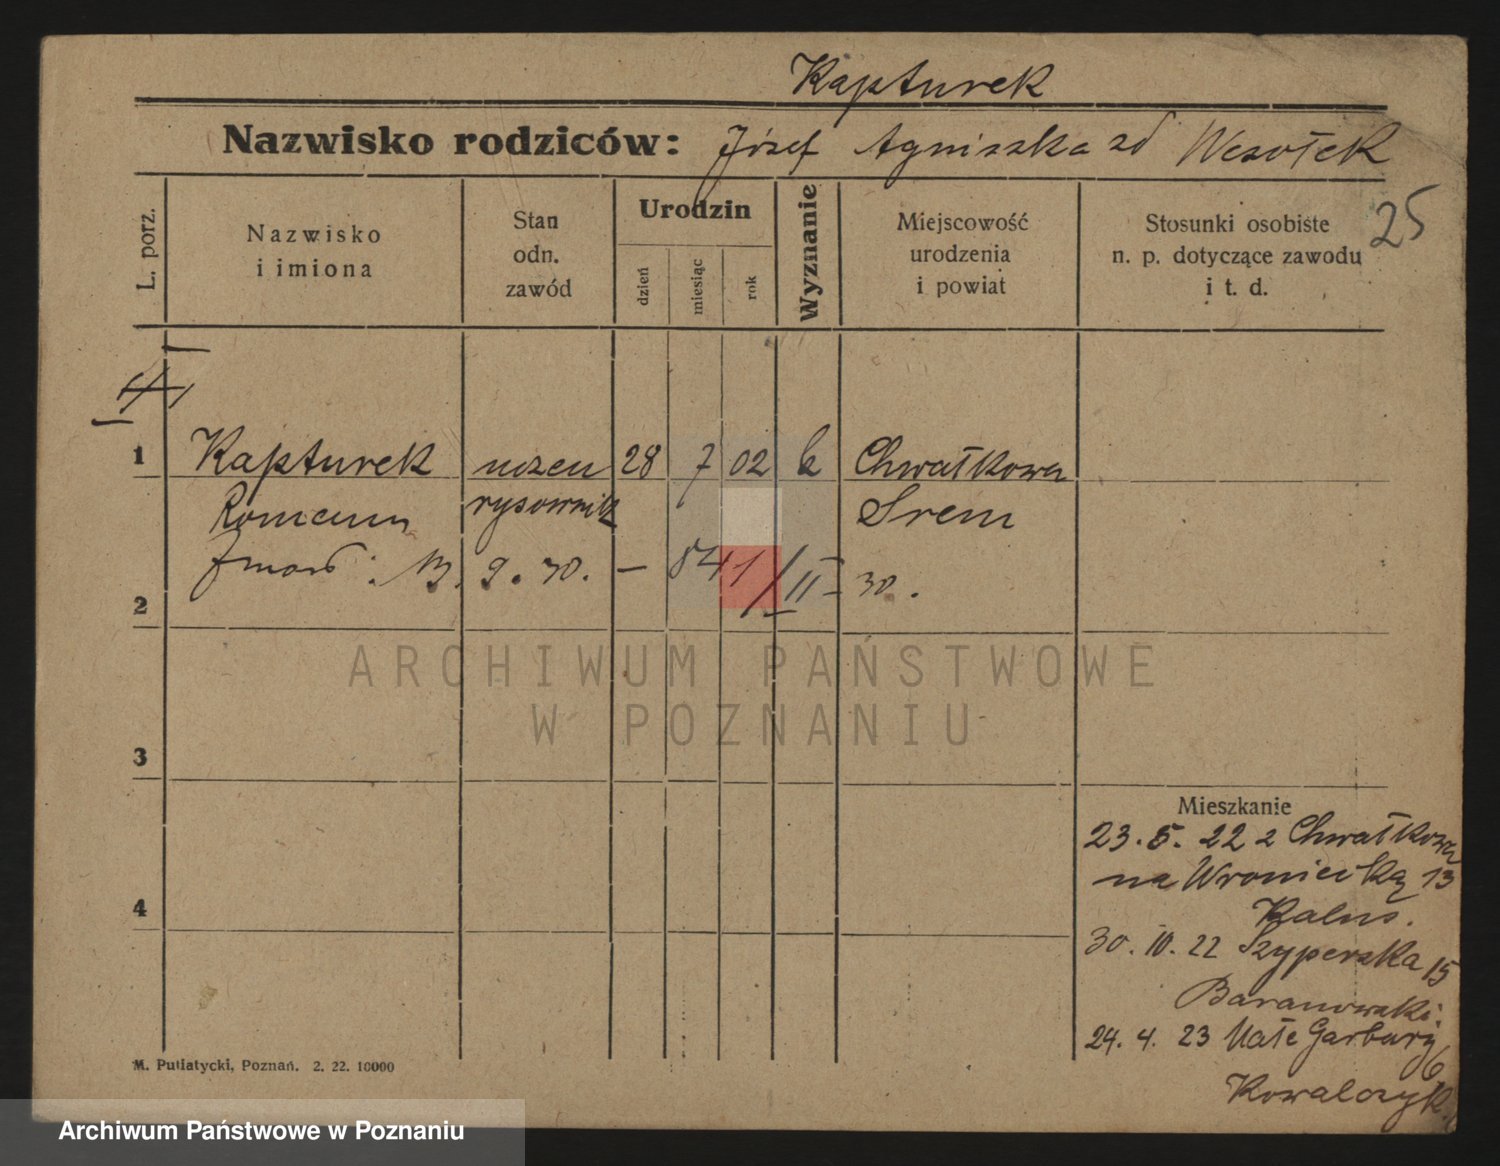 Kapturek
Nazwisko rodziców: Józef Agniszka zd Wesołek
25
L. porz.
Nazwisko i imiona
Stan odn. zawód
Urodzin
dzień
miesiąc
rok
Wyznanie
Miejscowość urodzenia i powiat
Stosunki osobiste n. p. dotyczące zawodu i t. d.
1 Kapturek uczeń 28 7 02 k Chwałkowa
Roman rysownik Śrem
zmarł. 13. 9. 30. — 841/II 30.
2
3
4
Mieszkanie
23. 5. 22 z Chwałkowa
na Wroniecką 13
30. 10. 22 Szyperska 15
Baranowski.
24. 4. 23 Małe Garbary 6
Kowalczyk.
M. Putiatycki, Poznań. 2. 22. 10000
ARCHIWUM PAŃSTWOWE
W POZNANIU
Archiwum Państwowe w Poznaniu